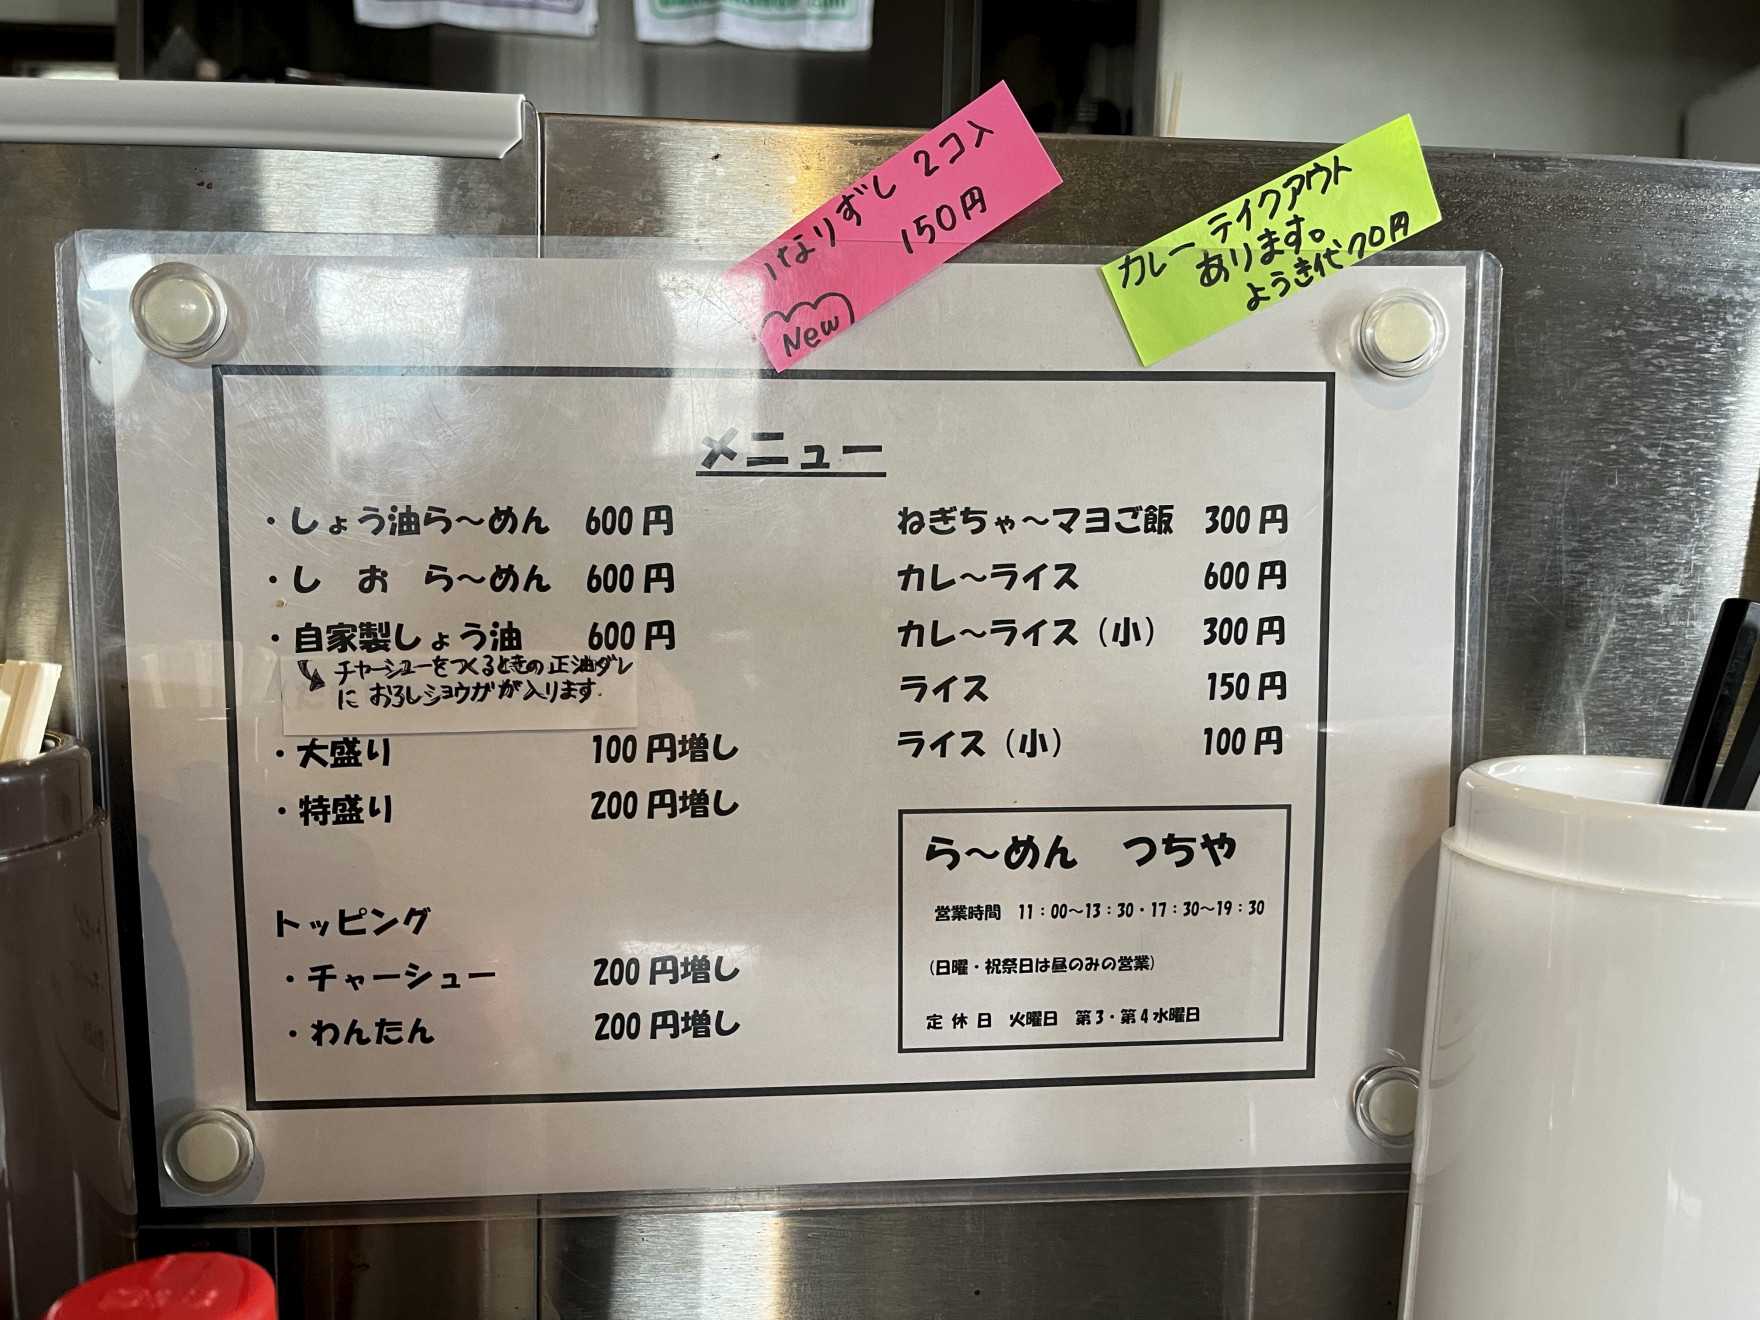 いなりずし 2コ入
150円
New
カレー テイクアウト
あります。
ようき代70円
メニュー
・しょう油ら～めん 600円
・し お ら～めん 600円
・自家製しょう油 600円
チャーシューをつくるときの正油ダレ
に おろしショウガが入ります.
・大盛り 100円増し
・特盛り 200円増し
トッピング
・チャーシュー 200円増し
・わんたん 200円増し
ねぎちゃ～マヨご飯 300円
カレ～ライス 600円
カレ～ライス（小） 300円
ライス 150円
ライス（小） 100円
ら～めん つちや
営業時間 11：00～13：30・17：30～19：30
（日曜・祝祭日は昼のみの営業）
定 休 日 火曜日 第3・第4水曜日